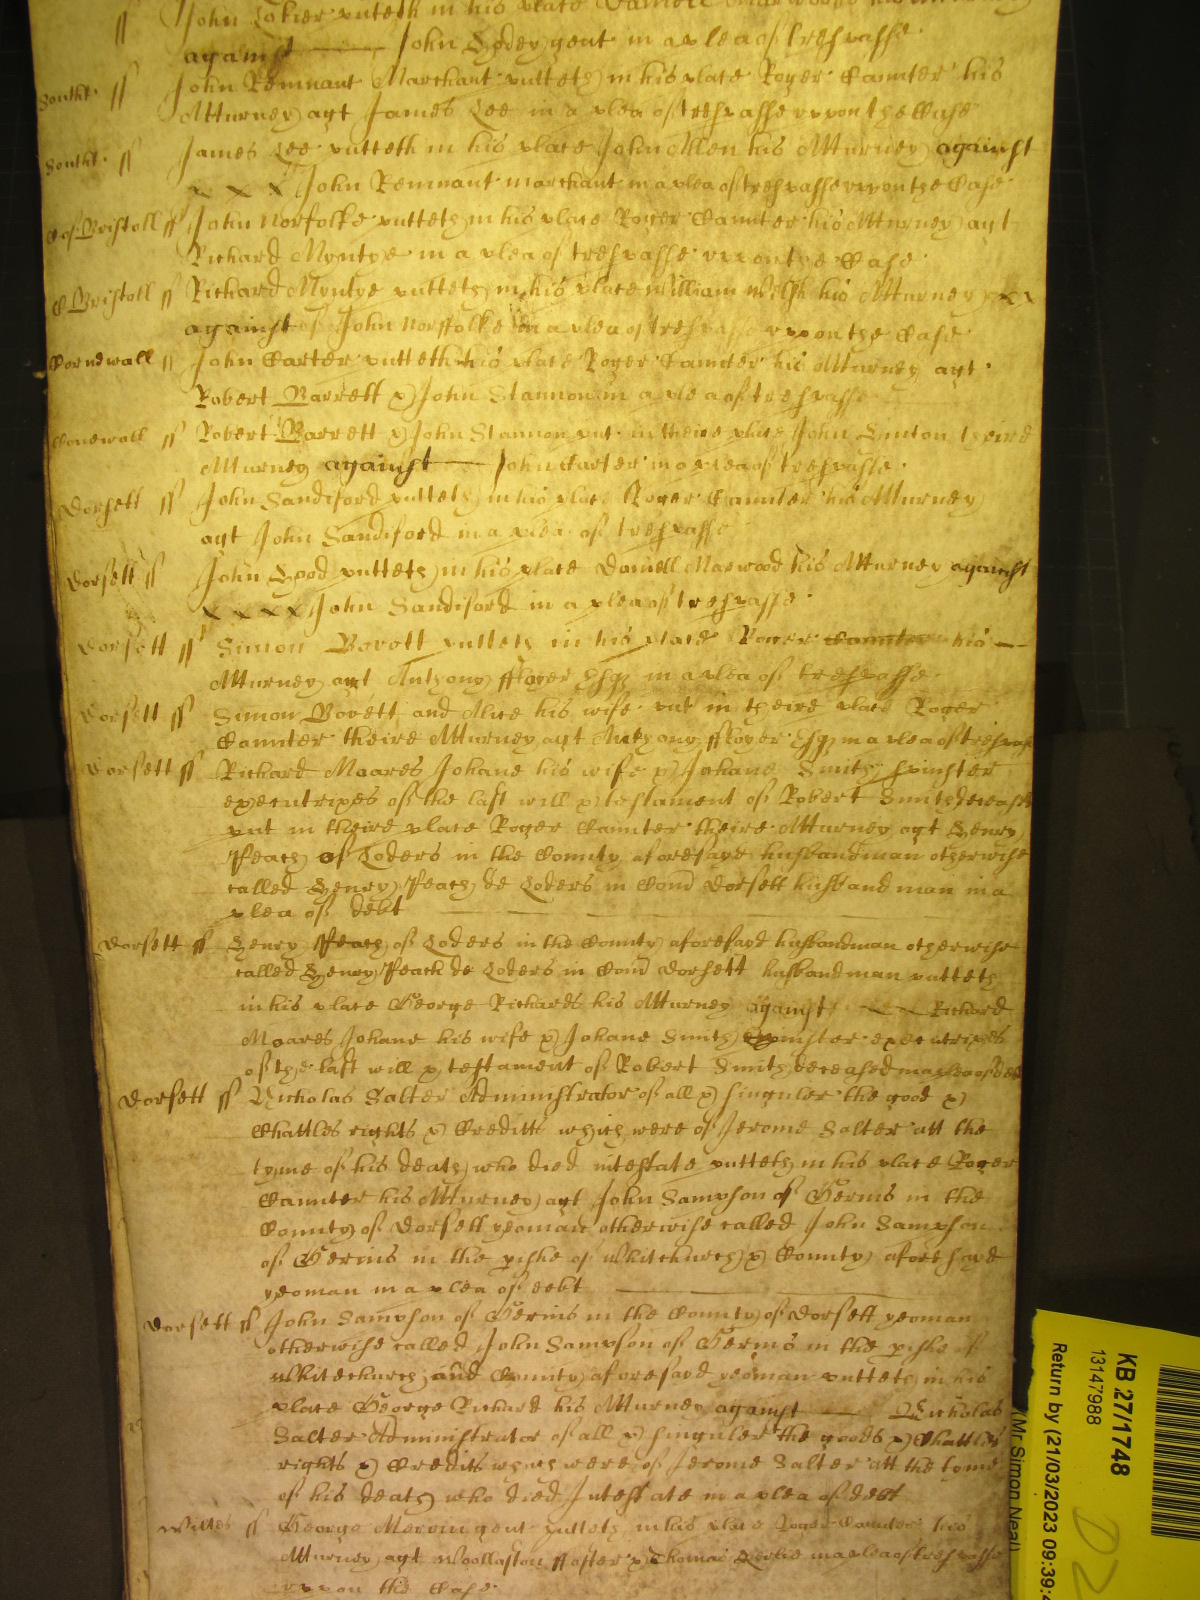 ss John Lokier putteth in his place Daniell
against —— John Godey gent in a plea of trespasse
Southt. ss John Remnant Marchant putteth in his place Roger Caunter his
Atturney agt James Lee in a plea of trespasse uppon the Case
Southt. ss James Lee putteth in his place John Allen his Atturney against
x x x John Remnant marchant in a plea of trespasse uppon the Case
C of Bristoll ss John Norfolke putteth in his place Roger Caunter his Atturney agt
Richard Myntye in a plea of trespasse uppon the Case
C Bristoll ss Richard Myntye putteth in his place William Welsh his Atturney x x
against of John Norffolke in a plea of trespasse uppon the Case
Cornewall ss John Carter putteth in his place Roger Caunter his Atturney agt
Robert Barrett & John Stannon in a plea of trespasse
Cornewall ss Robert Barrett & John Stannon put in theire place John Lynton theire
Atturney against —— John Carter in a plea of trespasse
Dorsett ss John Sandiford putteth in his place Roger Caunter his Atturney
agt John Sandiford in a plea of trespasse
Dorsett ss John Good putteth in his place Daniell Marwood his Atturney against
x x x x John Sandiford in a plea of trespasse
Dorsett ss Simon Bovett putteth in his place Roger Caunter his —
Atturney agt Anthony ffloyer Esqr in a plea of trespasse
Dorsett ss Simon Bovett and Alice his wife put in theire place Roger
Caunter theire Atturney agt Anthony ffloyer Esqr in a plea of trespass
Dorsett ss Richard Moares Johane his wife & Johane Smith spinster
executrixes of the last will & testament of Robert Smith deceased
put in theire place Roger Caunter theire Atturney agt Henry
Peach of Loders in the County aforesayd husbandman otherwise
called Henry Peach de Loders in Com Dorsett husbandman in a
plea of debt ——
Dorsett ss Henry Peach of Loders in the County aforesayd husbandman otherwise
called Henry Peach de Loders in Com Dorsett husbandman putteth
in his place George Richards his Atturney against —— Richard
Moares Johane his wife & Johane Smith Spinster executrixes
of the last will & testament of Robert Smith deceased in a plea of debt
Dorsett ss Nicholas Salter Administrator of all & singuler the good &
Chattles rights & Creditts which were of Jerome Salter att the
tyme of his death who died intestate putteth in his place Roger
Caunter his Atturney agt John Sampson of Berins in the
County of Dorsett yeoman otherwise called John Sampson
of Berins in the pishe of Whitchurch & County aforesayd
yeoman in a plea of debt ——
Dorsett ss John Sampson of Berins in the County of Dorsett yeoman
otherwise called John Sampson of Berins in the pishe of
Whitchurch and County aforesayd yeoman putteth in his
place George Richard his Atturney against —— Nicholas
Salter Administrator of all & singuler the goods & Chattles
rights & Creditts which were of Jerome Salter att the tyme
of his death who died Intestate in a plea of debt
Wiltes ss George Mervin gent putteth in his place Roger Caunter his
Atturney agt Woollaston ffoster & Thomas in a plea of trespasse
uppon the Case
KB 27/1748
13147988
Return by (21/03/2023 09:39:4
(Mr Simon Neal)
D2